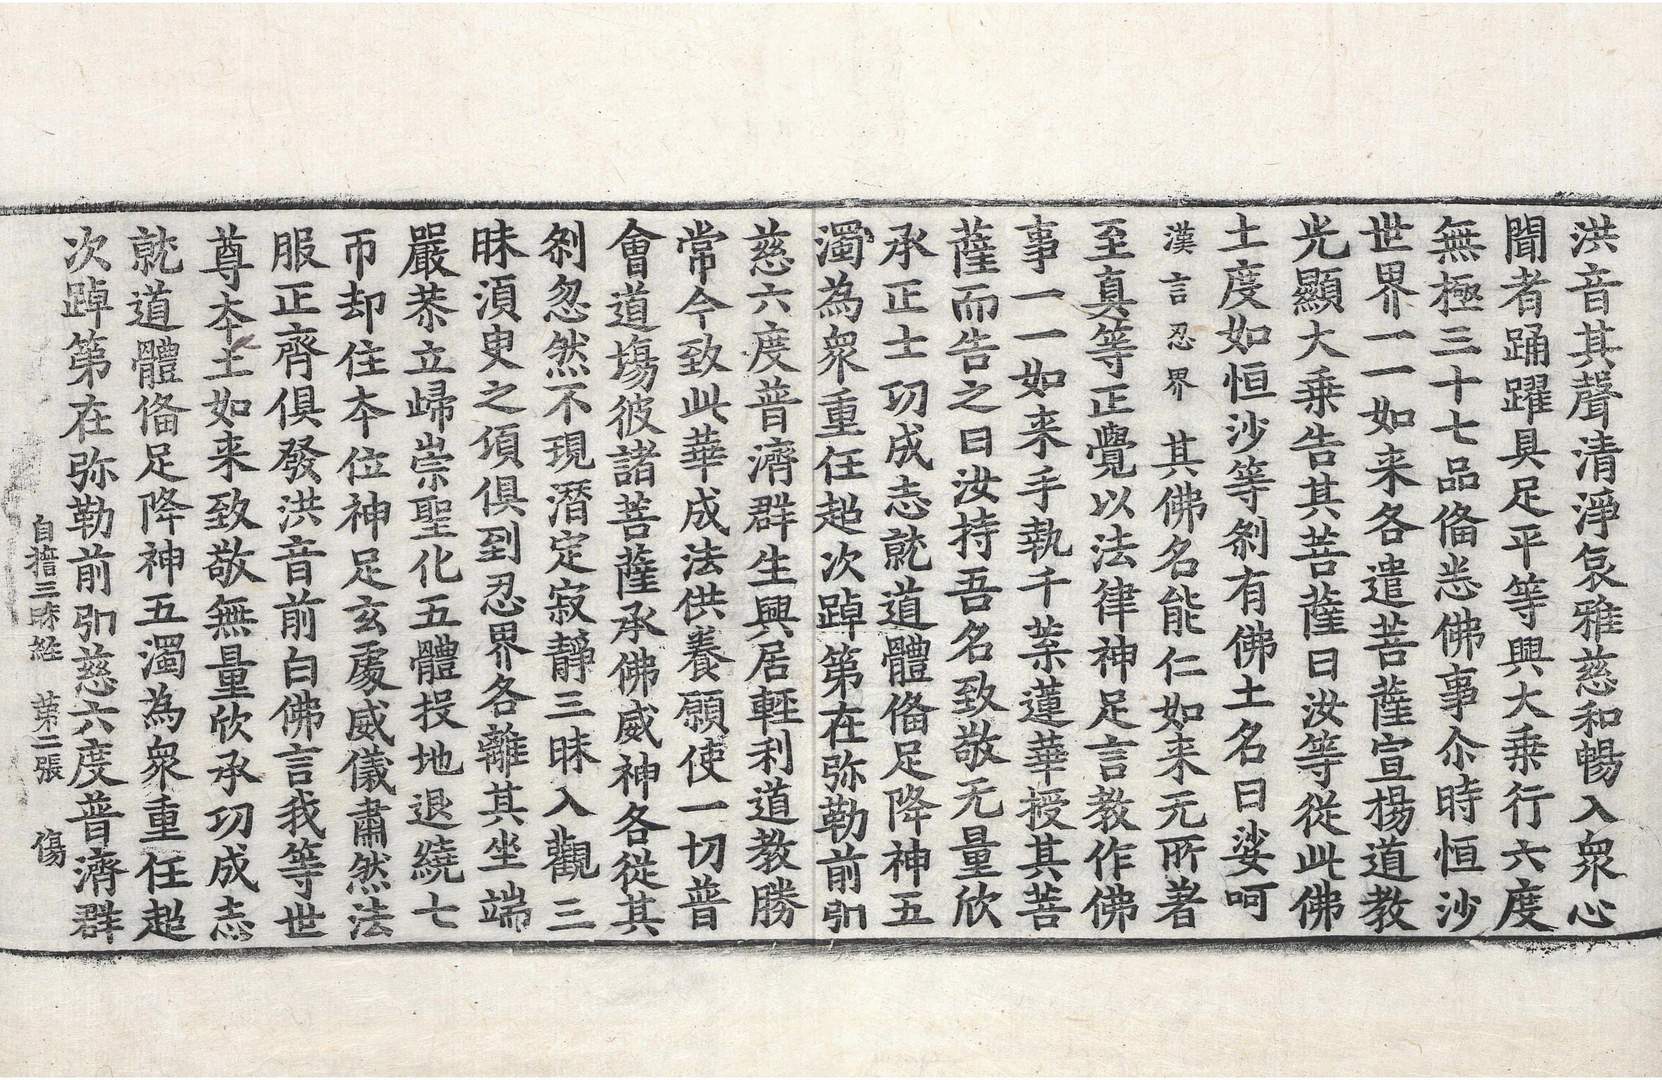 洪音其聲清淨哀雅慈和暢入衆心
聞者踊躍具足平等興大乗行六度
無極三十七品俻悉佛事尒時恒沙
世界一一如来各遣菩薩宣楊道教
光顯大乗告其菩薩曰汝等從此佛
土度如恒沙等刹有佛土名曰娑呵
漢言忍界 其佛名能仁如来元所著
至真等正覺以法律神足言教作佛
事一一如来手執千葉蓮華授其菩
薩而告之曰汝持吾名致敬无量欣
承正士功成志就道體俻足降神五
濁為衆重任超次踔第在弥勒前引
慈六度普濟群生興居輕利道教勝
常今致此華成法供養願使一切普
會道塲彼諸菩薩承佛威神各從其
刹忽然不現潛定寂靜三昧入觀三
昧湏臾之頃俱到忍界各離其坐端
嚴恭立歸崇聖化五體投地退繞七
帀却住夲位神足玄處威儀肅然法
服正齊俱發洪音前白佛言我等世
尊夲土如来致敬無量欣承功成志
就道體俻足降神五濁為衆重任超
次踔第在弥勒前引慈六度普濟群
自擔三昧経 苐二張 傷